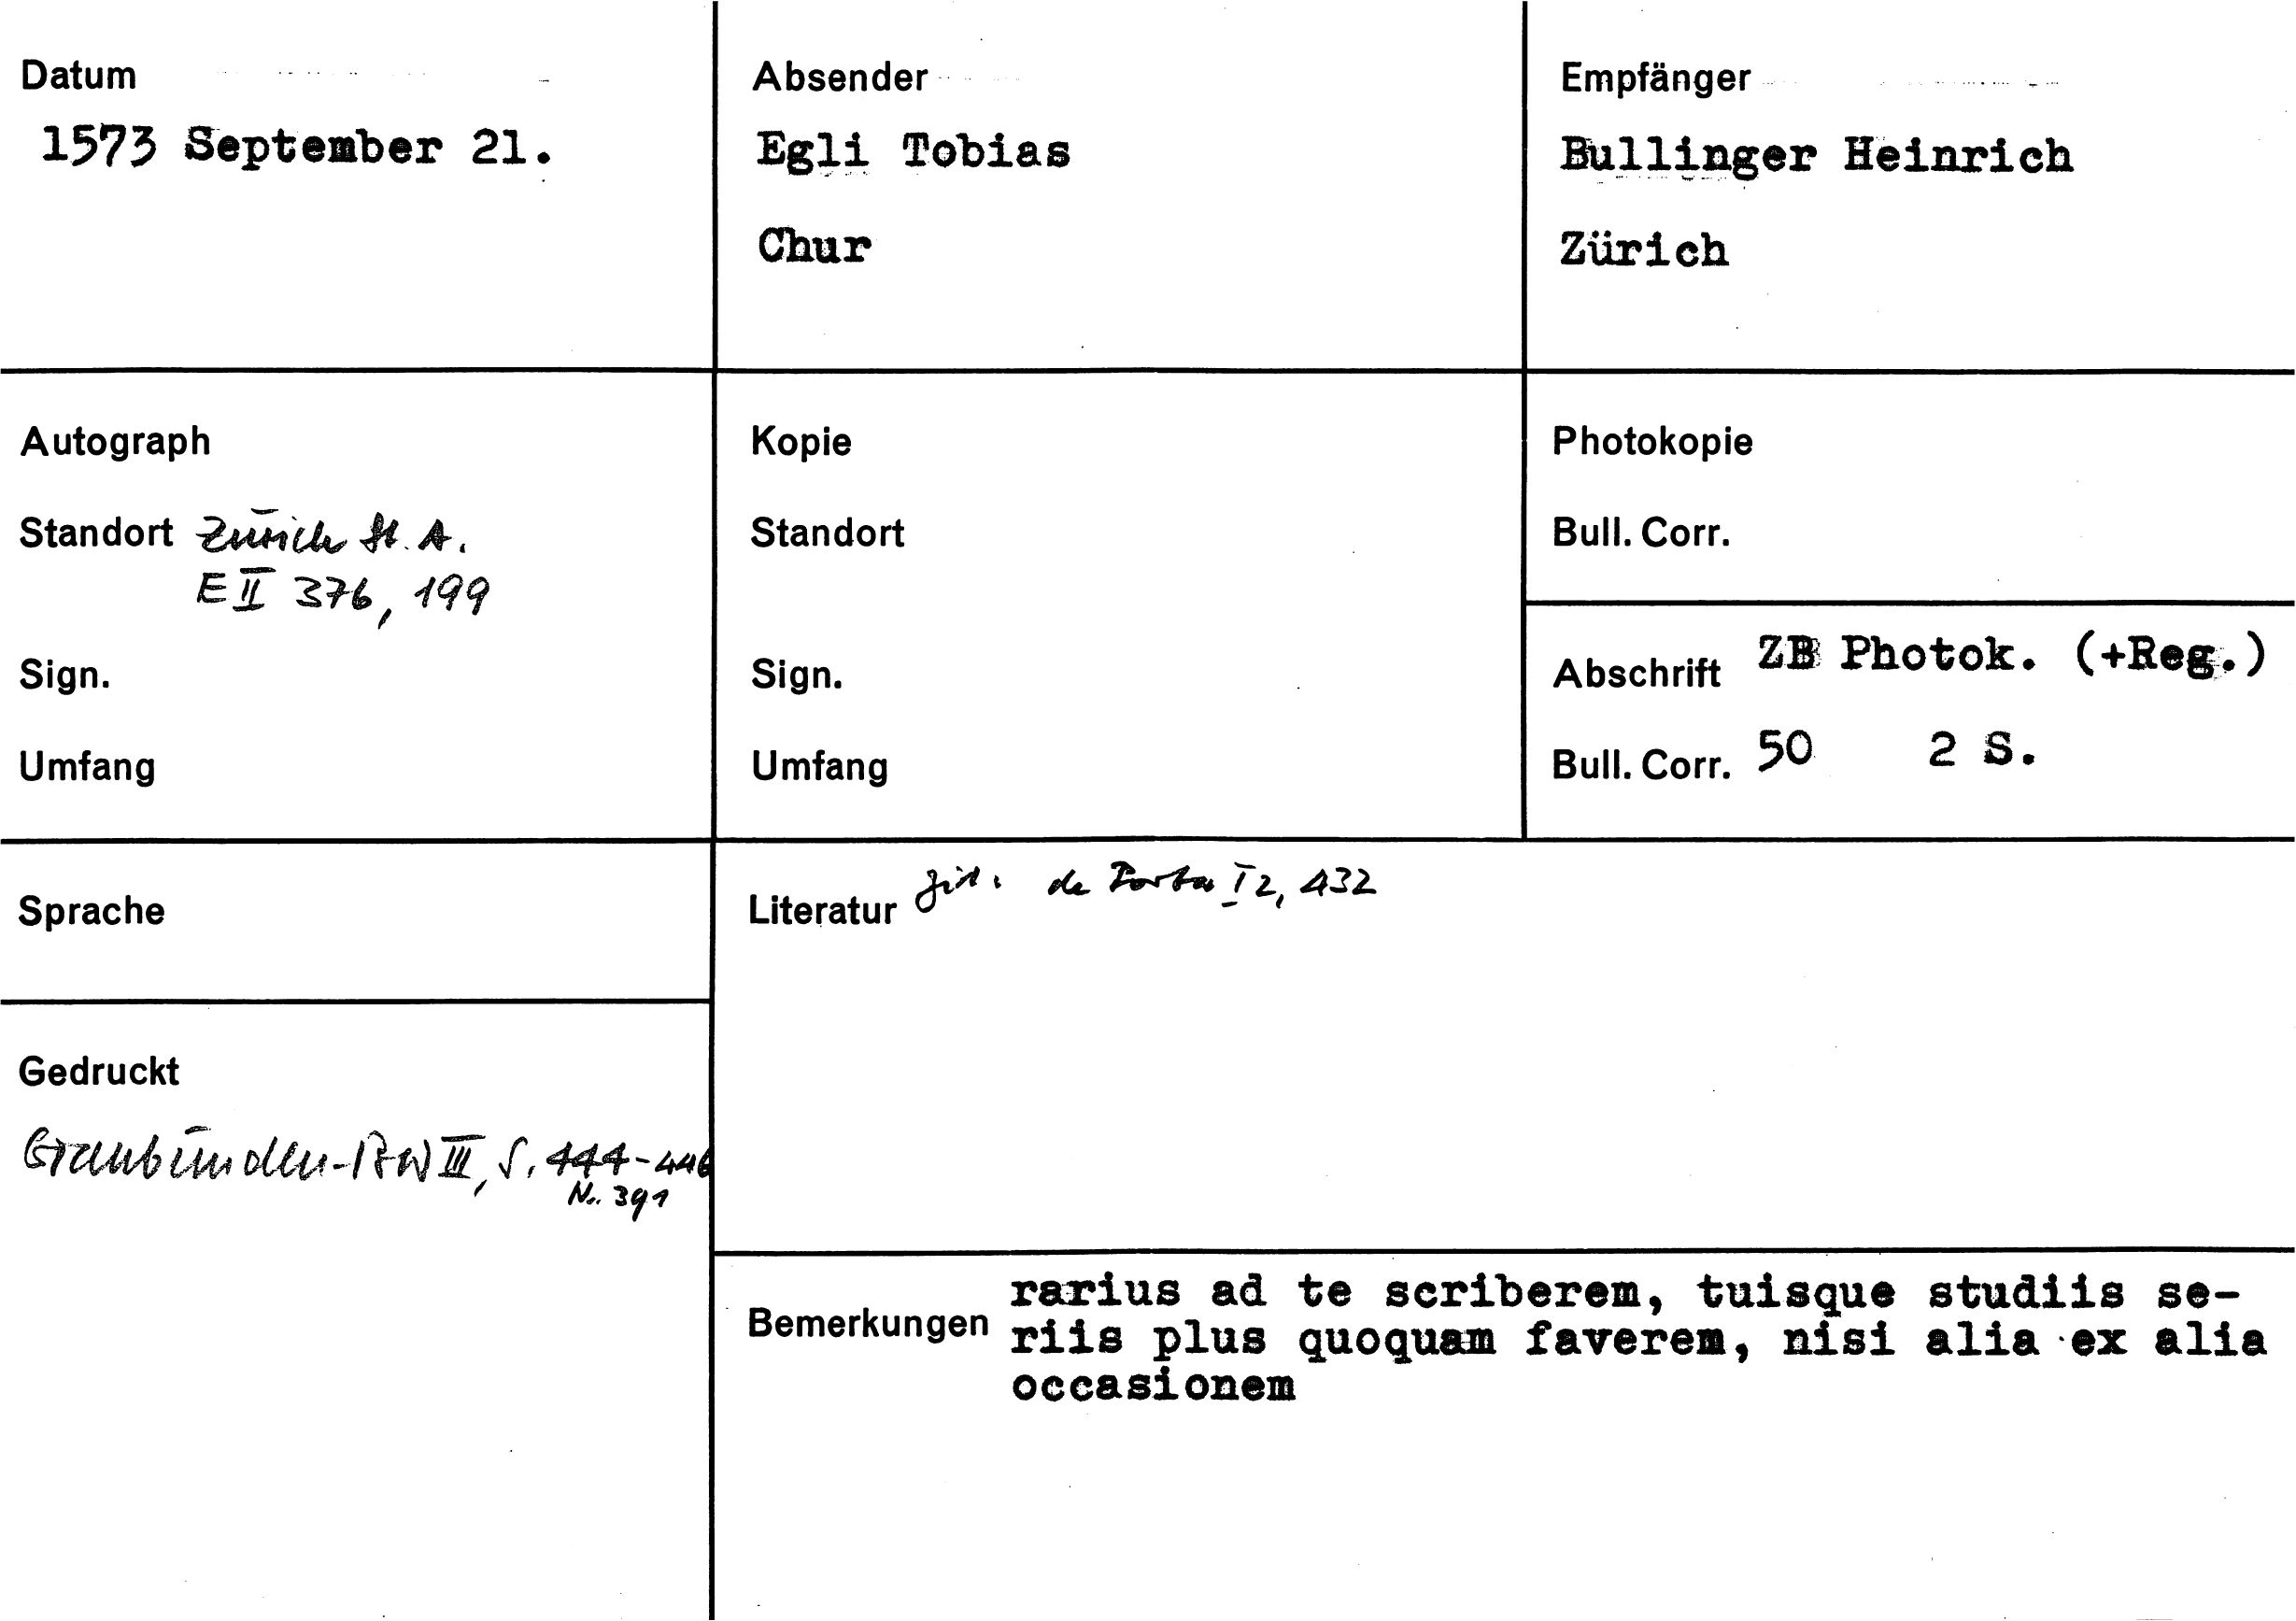 Datum
1573 September 21.
Absender
Egli Tobias
Chur
Empfänger
Bullinger Heinrich
Zürich
Autograph
Standort Zürich St. A.
E II 376, 199
Sign.
Umfang
Kopie
Standort
Sign.
Umfang
Photokopie
Bull. Corr.
Abschrift ZB Photok. (+Reg.)
Bull. Corr. 50 2 S.
Sprache
Gedruckt
Graubünden-BW III, S. 444-446
Nr. 391
Literatur zit: de Porta I 2, 432
Bemerkungen rarius ad te scriberem, tuisque studiis se-
riis plus quoquam faverem, nisi alia ex alia
occasionem